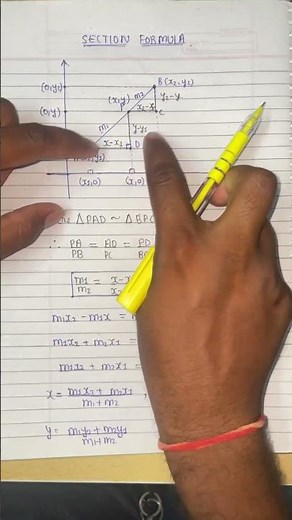 SECTION FORMULA
B (x₂, y₂)
(0, y₂)
m₂
y₂-y
(x, y)
x₂-x
(0, y)
C
m₁
y-y₁
x-x₁
D
(x₁, 0)
(x, 0)
ΔPAD ~ ΔBPC
∴ PA/PB = AD/PC = PD
m₁/m₂ = x-x
m₁x₂ - m₁x =
m₁x₂ + m₂x₁ =
m₁x₂ + m₂x₁ =
x = m₁x₂ + m₂x₁ / m₁+m₂ ,
y = m₁y₂ + m₂y₁ / m₁+m₂